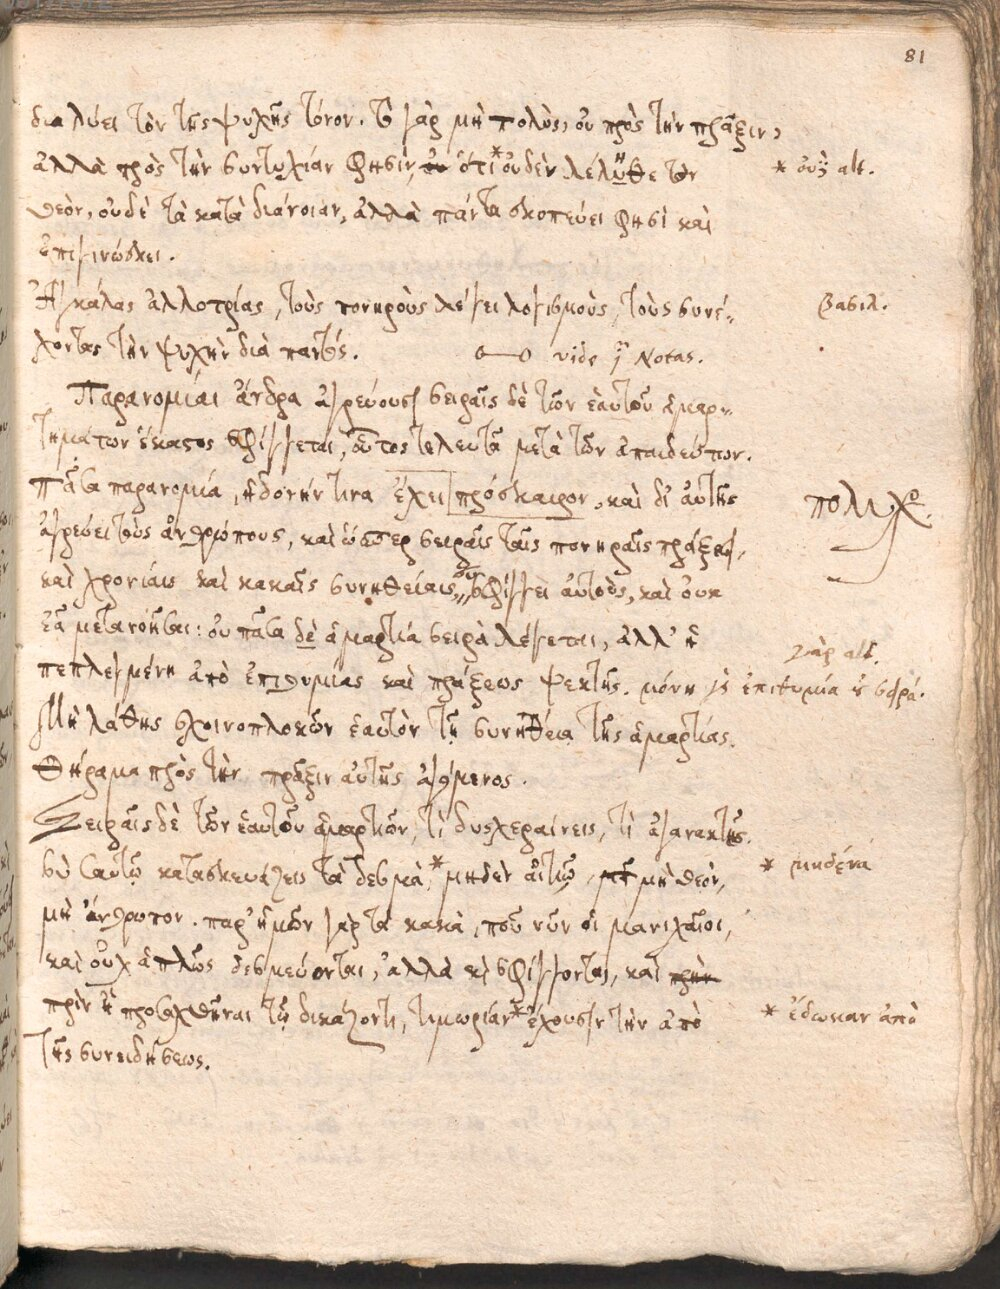 81
διαλύει τὸν τῆς ψυχῆς τόνον. τὸ γὰρ μὴ πολὺς, οὐ πρὸς τὴν πρᾶξιν,
ἀλλὰ πρὸς τὴν συντυχίαν φησὶν, ὅτι* οὐδὲν λέληθε τὸν
* οὐχ alt.
θεὸν, οὐδὲ τὰ κατὰ διάνοιαν, ἀλλὰ πάντα σκοπεύει φησὶ καὶ
ἐπιγινώσκει.
Ἀγκάλας ἀλλοτρίας, τοὺς πονηροὺς λέγει λογισμοὺς, τοὺς συνέ-
βασιλ.
χοντας τὴν ψυχὴν διὰ παντός. vide Notas.
Παρανομίαι ἄνδρα ἀγρεύουσι σειραῖς δὲ τῶν ἑαυτοῦ ἁμαρ-
τημάτων ἕκαστος σφίγγεται, οὗτος τελευτᾷ μετὰ τῶν ἀπαιδεύτων.
Πᾶσα παρανομία, ἡδονήν τινα ἔχει πρόσκαιρον, καὶ δι' αὐτῆς
πολυχο.
ἀγρεύει τοὺς ἀνθρώπους, καὶ ὥσπερ σειραῖς ταῖς πονηραῖς πράξεσι,
καὶ χρονίαις καὶ κακαῖς συνηθείαις συσφίγγει αὐτοὺς, καὶ οὐκ
ἐᾷ μετανοῆσαι: οὐ πᾶσα δὲ ἁμαρτία σειρὰ λέγεται, ἀλλ' ἡ
γὰρ alt.
πεπλεγμένη ἀπὸ ἐπιθυμίας καὶ πράξεως ψεκτῆς. μόνη γὰρ ἐπιθυμία οὐ σειρά.
Μὴ λάθῃς σχοινοπλοκῶν ἑαυτὸν τῇ συνηθείᾳ τῆς ἁμαρτίας.
Θήραμα πρὸς τὴν πρᾶξιν αὐτῆς ἀγόμενος.
Σειραῖς δὲ τῶν ἑαυτοῦ ἁμαρτιῶν, τί δυσχεραίνεις, τί ἀγανακτεῖς.
σὺ σαυτῷ κατασκευάζεις τὰ δεσμὰ,* μηδὲν αἰτιῶ, μὴ θεὸν,
* μηδένα
μὴ ἄνθρωπον. παρ' ἡμῶν γὰρ τὰ κακὰ, ποῦ νῦν οἱ μανιχαῖοι,
καὶ οὐχ ἁπλῶς δεσμεύονται, ἀλλὰ καὶ σφίγγονται, καὶ
πρὶν ἢ προσαχθῆναι τῷ δικάζοντι, τιμωρίαν* ἔχουσιν τὴν ἀπὸ
* ἔδωκαν ἀπὸ
τῆς συνειδήσεως.